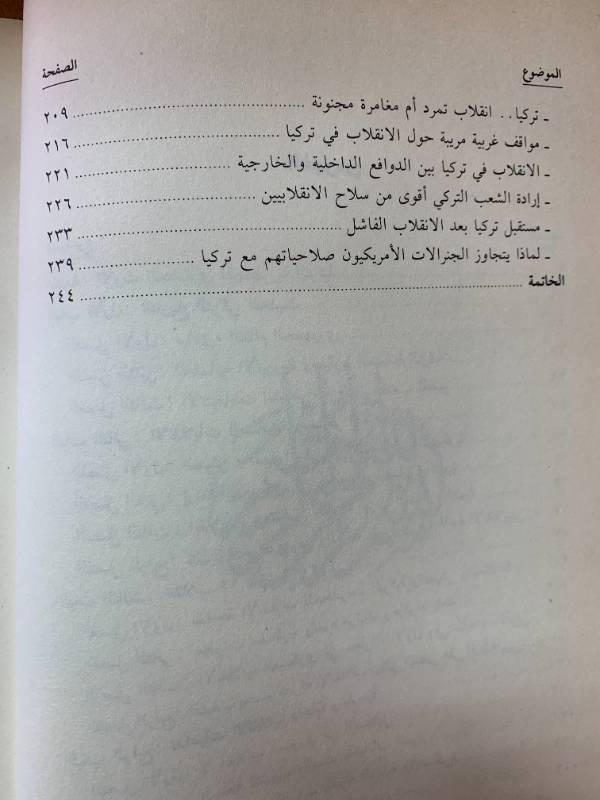 الموضوع الصفحة
ـ تركيا.. انقلاب تمرد أم مغامرة مجنونة ........ ٢٠٩
ـ مواقف غربية مريبة حول الانقلاب في تركيا ........ ٢١٦
ـ الانقلاب في تركيا بين الدوافع الداخلية والخارجية ........ ٢٢١
ـ إرادة الشعب التركي أقوى من سلاح الانقلابيين ........ ٢٢٦
ـ مستقبل تركيا بعد الانقلاب الفاشل ........ ٢٣٣
ـ لماذا يتجاوز الجنرالات الأمريكيون صلاحياتهم مع تركيا ........ ٢٣٩
الخاتمة ........ ٢٤٤